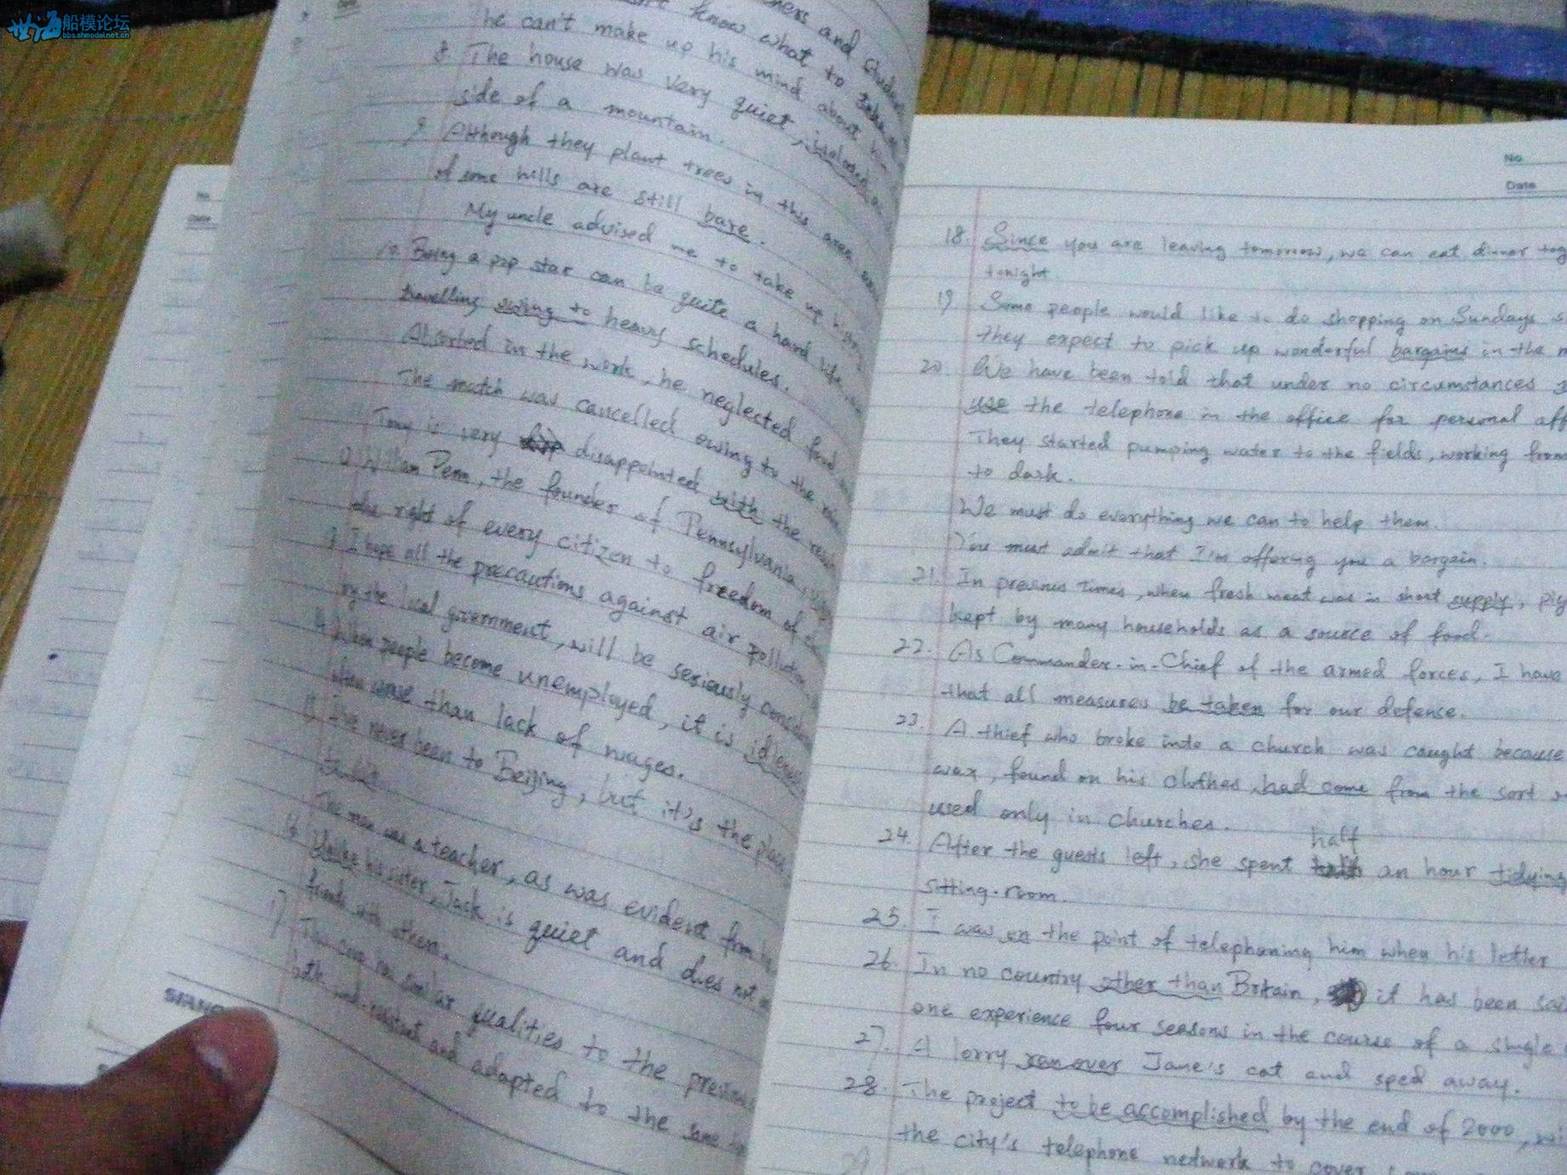 船模论坛
bbs.shmodel.net.cn
know what to take
he can't make up his mind about
8. The house was very quiet, isolated
side of a mountain.
9. Although they plant trees in this area
of some hills are still bare.
My uncle advised me to take up
10. Being a pop star can be quite a hard life,
travelling owing to heavy schedules.
Absorbed in the work, he neglected food
The match was cancelled owing to the
Tony is very disappointed with the
William Penn, the founder of Pennsylvania,
the right of every citizen to freedom of
I hope all the precautions against air pollution,
by the local government, will be seriously
When people become unemployed, it is idleness
worse than lack of wages.
I've never been to Beijing, but it's the place
The man was a teacher, as was evident from
Unlike his sister, Jack is quiet and does not
friends with them.
17. The cove similar qualities to the previous
both and adapted to the same
No.
Date
No.
Date
18. Since you are leaving tomorrow, we can eat dinner
tonight.
19. Some people would like to do shopping on Sundays
they expect to pick up wonderful bargains in the
20. We have been told that under no circumstances
use the telephone in the office for personal
They started pumping water to the fields, working from
to dark.
We must do everything we can to help them.
You must admit that I'm offering you a bargain.
21. In previous times, when fresh meat was in short supply,
kept by many households as a source of food.
22. As Commander-in-Chief of the armed forces, I have
that all measures be taken for our defense.
23. A thief who broke into a church was caught because
wax, found on his clothes, had come from the sort
used only in churches.
half
24. After the guests left, she spent an hour tidying
sitting-room.
25. I was on the point of telephoning him when his letter
26. In no country other than Britain, it has been
one experience four seasons in the course of a single
27. A lorry ran over Jane's cat and sped away.
28. The project to be accomplished by the end of 2000,
the city's telephone network to cover
29